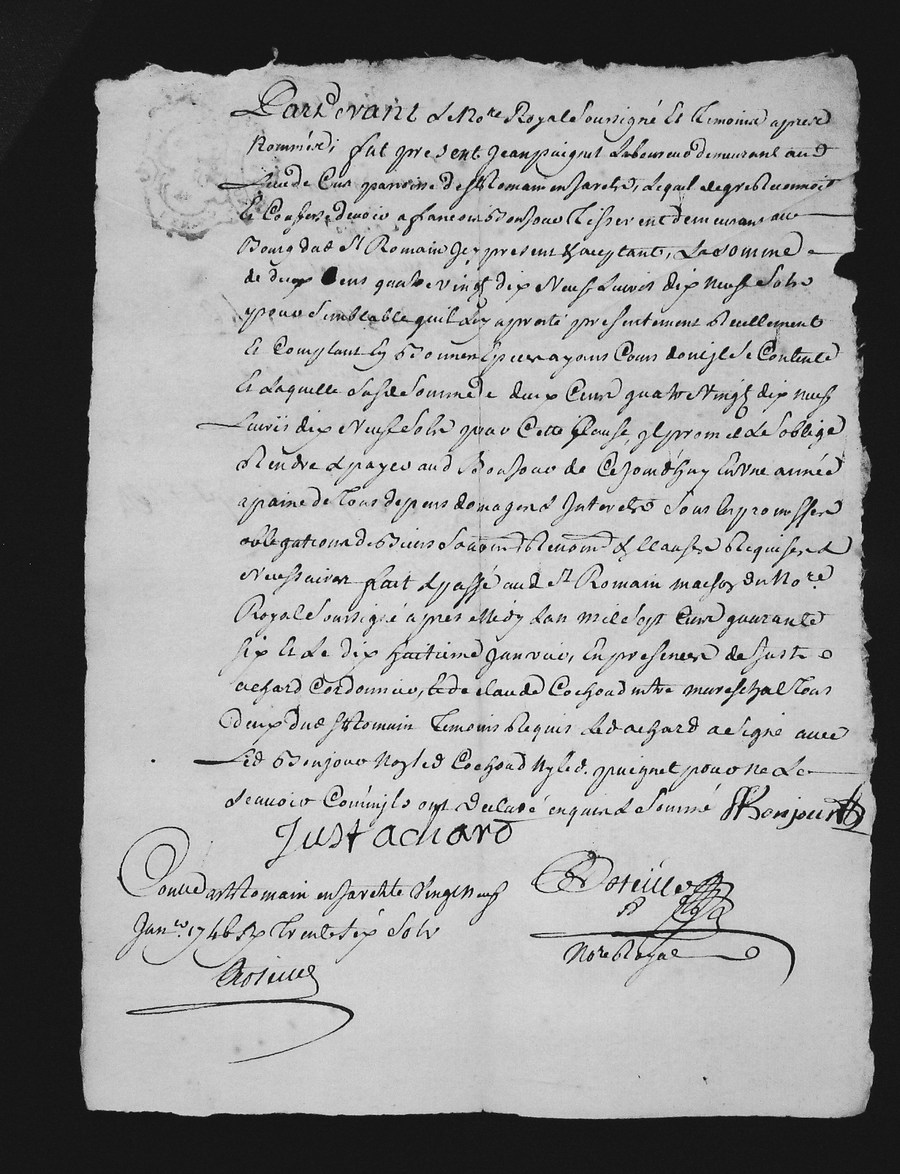 Pardevant Le No.re Royal Soussigné Et Temoins apres
Nommés, fut present Jean puignet Laboureur demeurant au
Lieu de Cus parroisse de St Romain en Jarets, Lequel de gré Reconnoit
Et Confesse devoir a francois Bonjour Tisserent demeurant au
Bourg dud St Romain Icy present & aceptant, La Somme
de deux Cens quatre vingt dix Neuf Livres dix neuf Sols
pour Semblable quil Luy a presté presentement Reellement
Et Comptant En Bonnes Especes ayans Cours dont il Se Contente
Et Laquelle Susd Somme de deux Cens quatre Vingt dix neuf
Livres dix Neuf Sols pour Cette Clause, yl promet & Soblige
Rendre & payer aud Bonjour de Cejourdhuy En Une année
a paine de Tous depens domages & Interests Sous Les promesses
obligations de Biens Soumon Renom & Clauses Requises &
Necessaires fait & passé aud St Romain maison du No.re
Royal Soussigné apres Midy Lan mil Sept Cens quarante
Six Et Le dix huitieme Janvier, En presence de Juste
achard Cordonnier, & de claude Cochard mtre mareschal Tous
deux dud St Romain Temoins Requis Led achard a Signé avec
Led Bonjour Non led Cochard Ny led. puignet pour ne Le
Scavoir Comm'ils ont declaré enquis & Sommé Bonjour
Just achard
Conllé a St Romain en Jarets le Vingt Neuf
Janr. 1746 R Trente Six Sols
No.re Royal